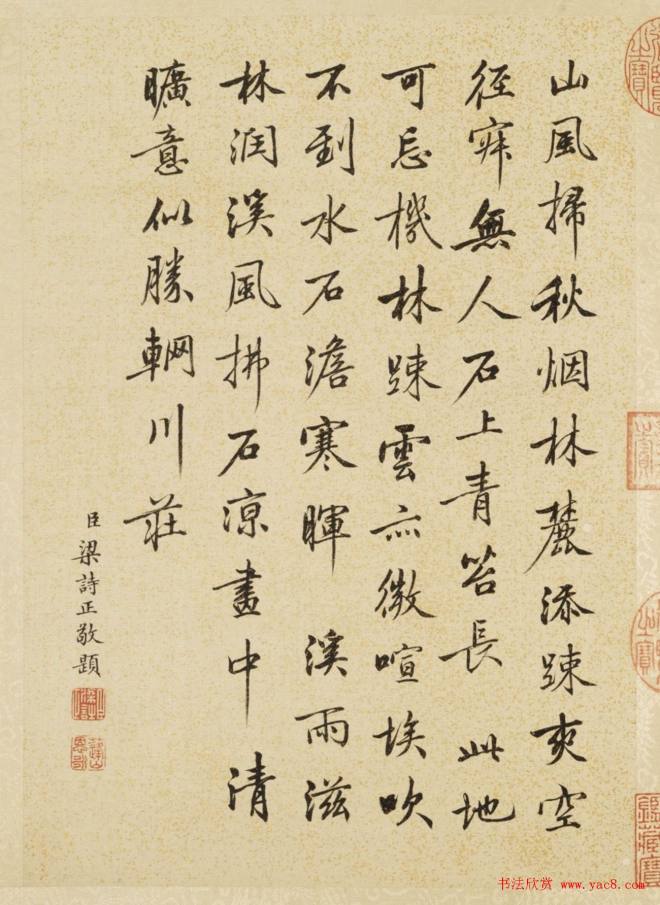 山風掃秋烟林麓添踈爽空
径寂無人石上青苔長 此地
可忘機林踈雲亦微喧埃吹
不到水石澹寒暉 溪雨滋
林润溪風拂石涼畫中清
曠意似勝輞川莊
臣梁詩正敬題
书法欣赏 www.yac8.com